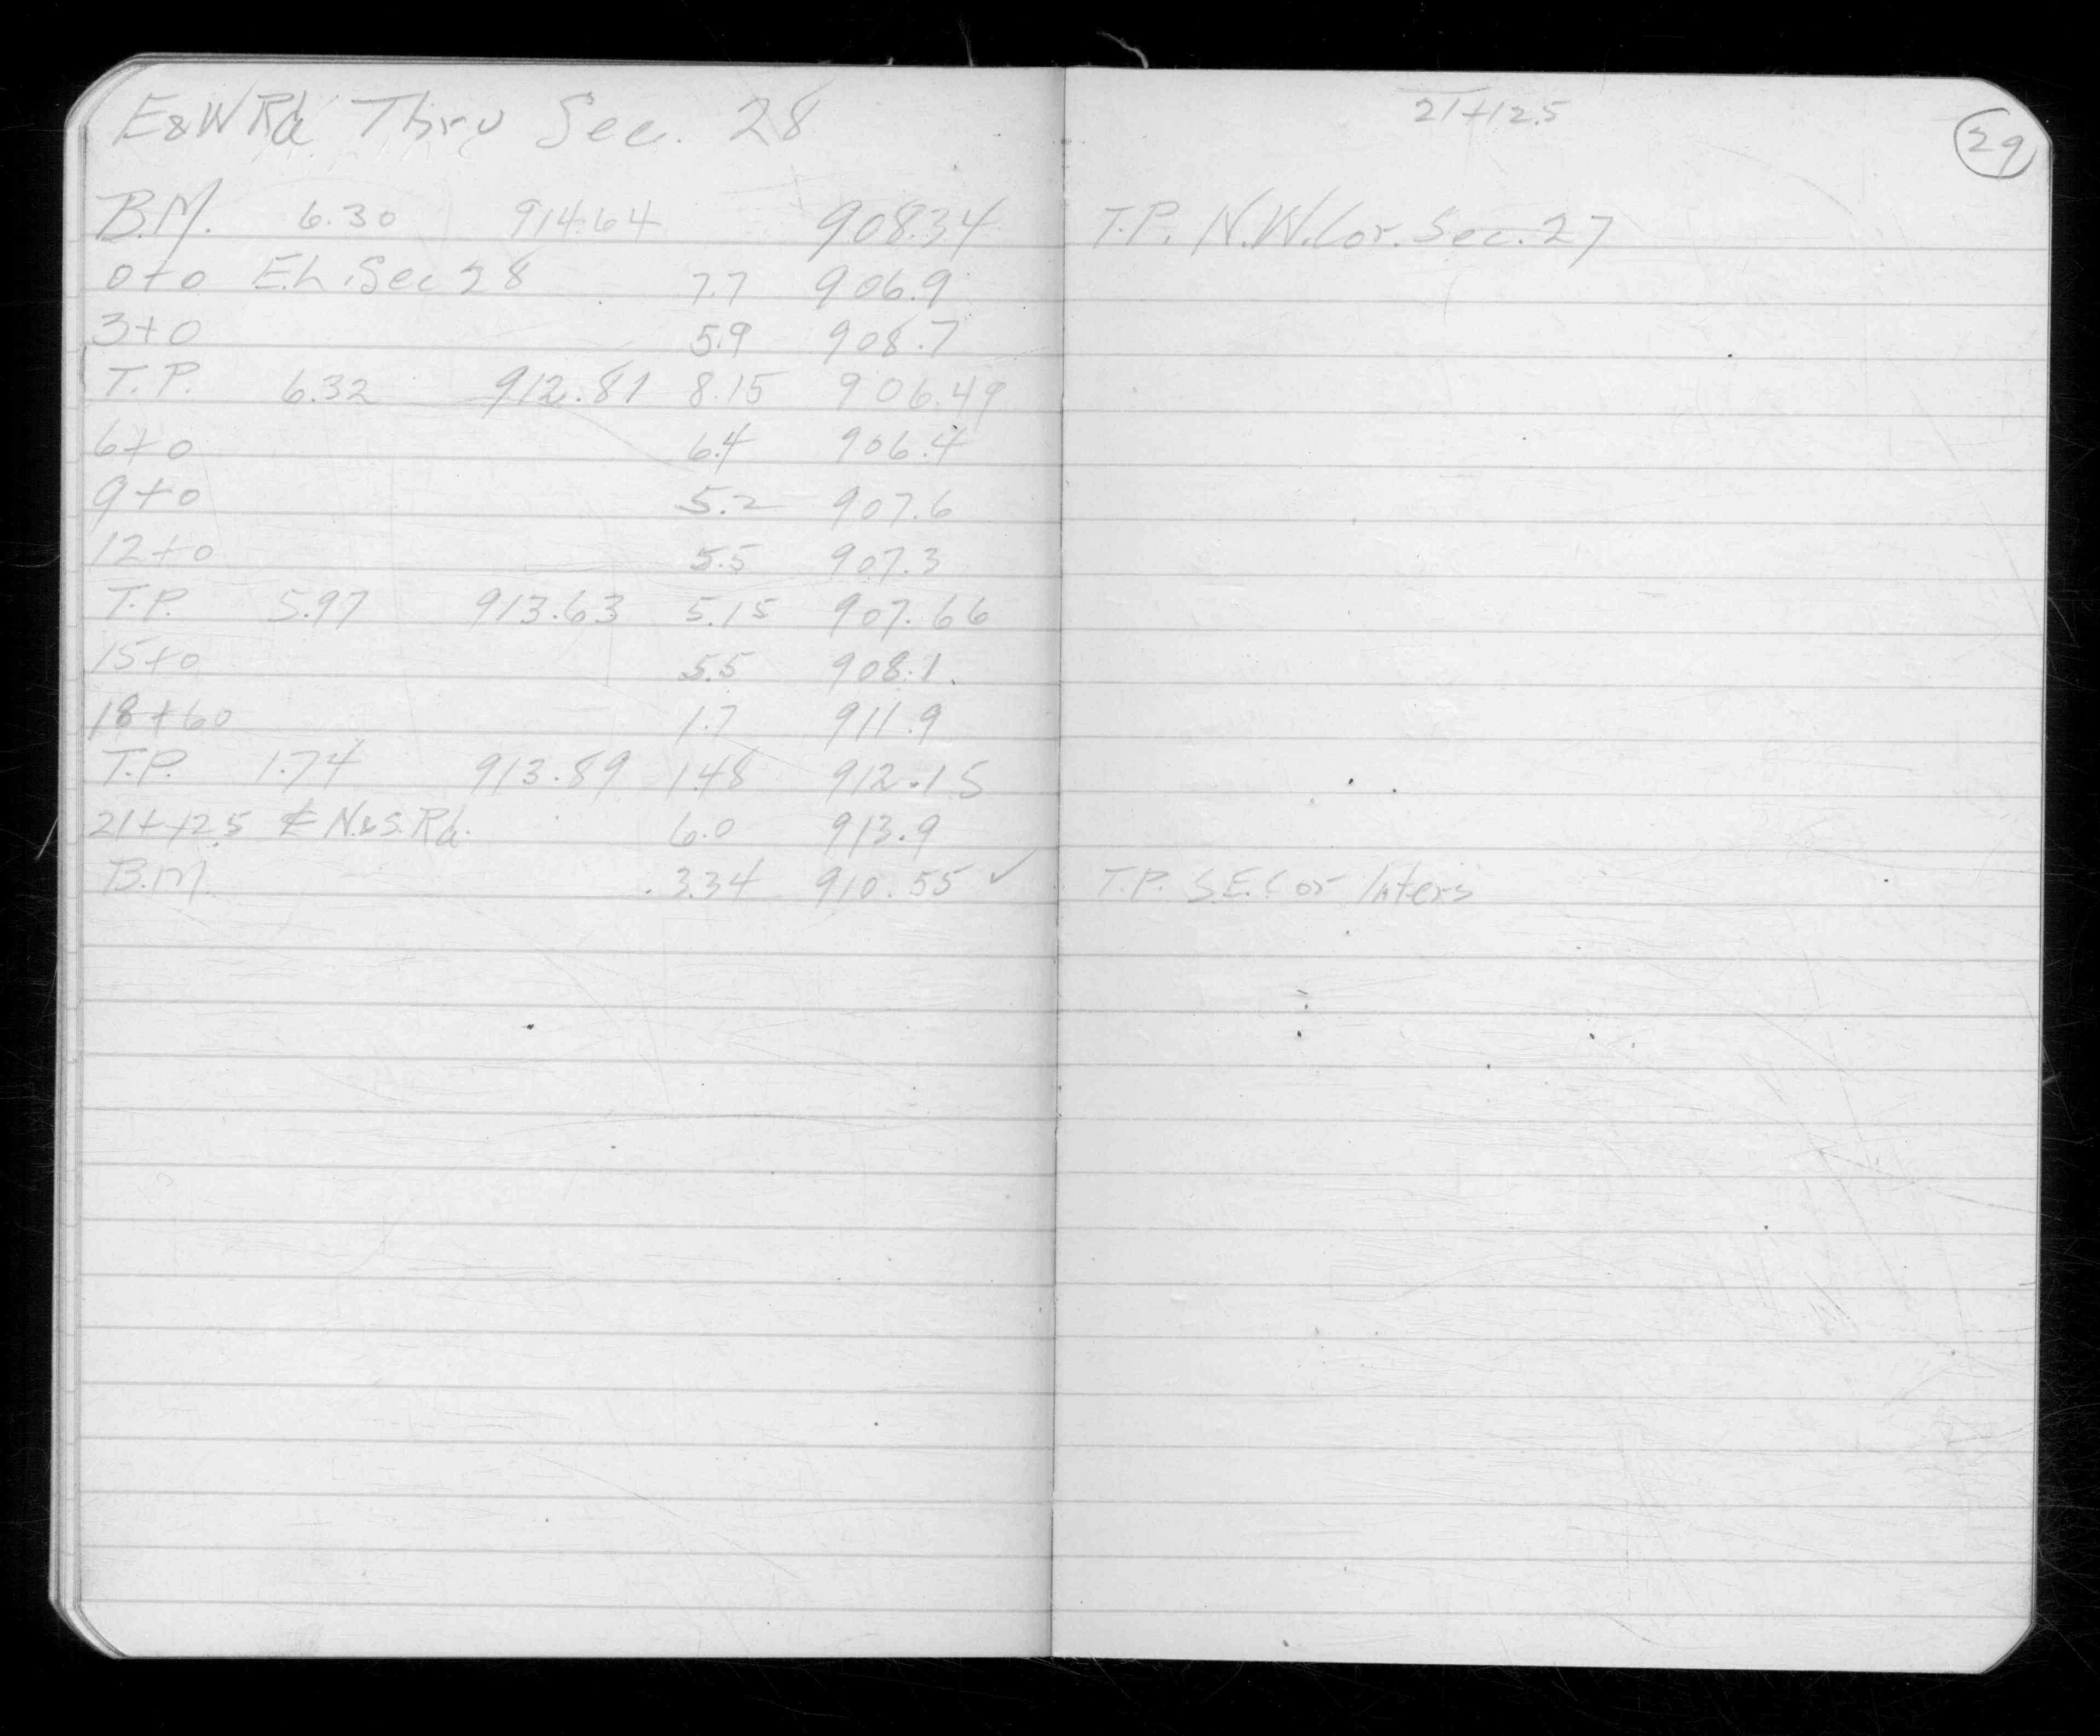 E&W Rd Thru Sec. 28
B.M. 6.30 914.64 908.34
0+0 E.L. Sec 28 7.7 906.9
3+0 5.9 908.7
T.P. 6.32 912.81 8.15 906.49
6+0 6.4 906.4
9+0 5.2 907.6
12+0 5.5 907.3
T.P. 5.97 913.63 5.15 907.66
15+0 5.5 908.1
18+60 1.7 911.9
T.P. 1.74 913.89 1.48 912.15
21+12.5 ℄ N.&S. Rd. 6.0 913.9
B.M. 3.34 910.55 ✓
21+12.5
29
T.P. N.W. Cor. Sec. 27
T.P. S.E. Cor Inters